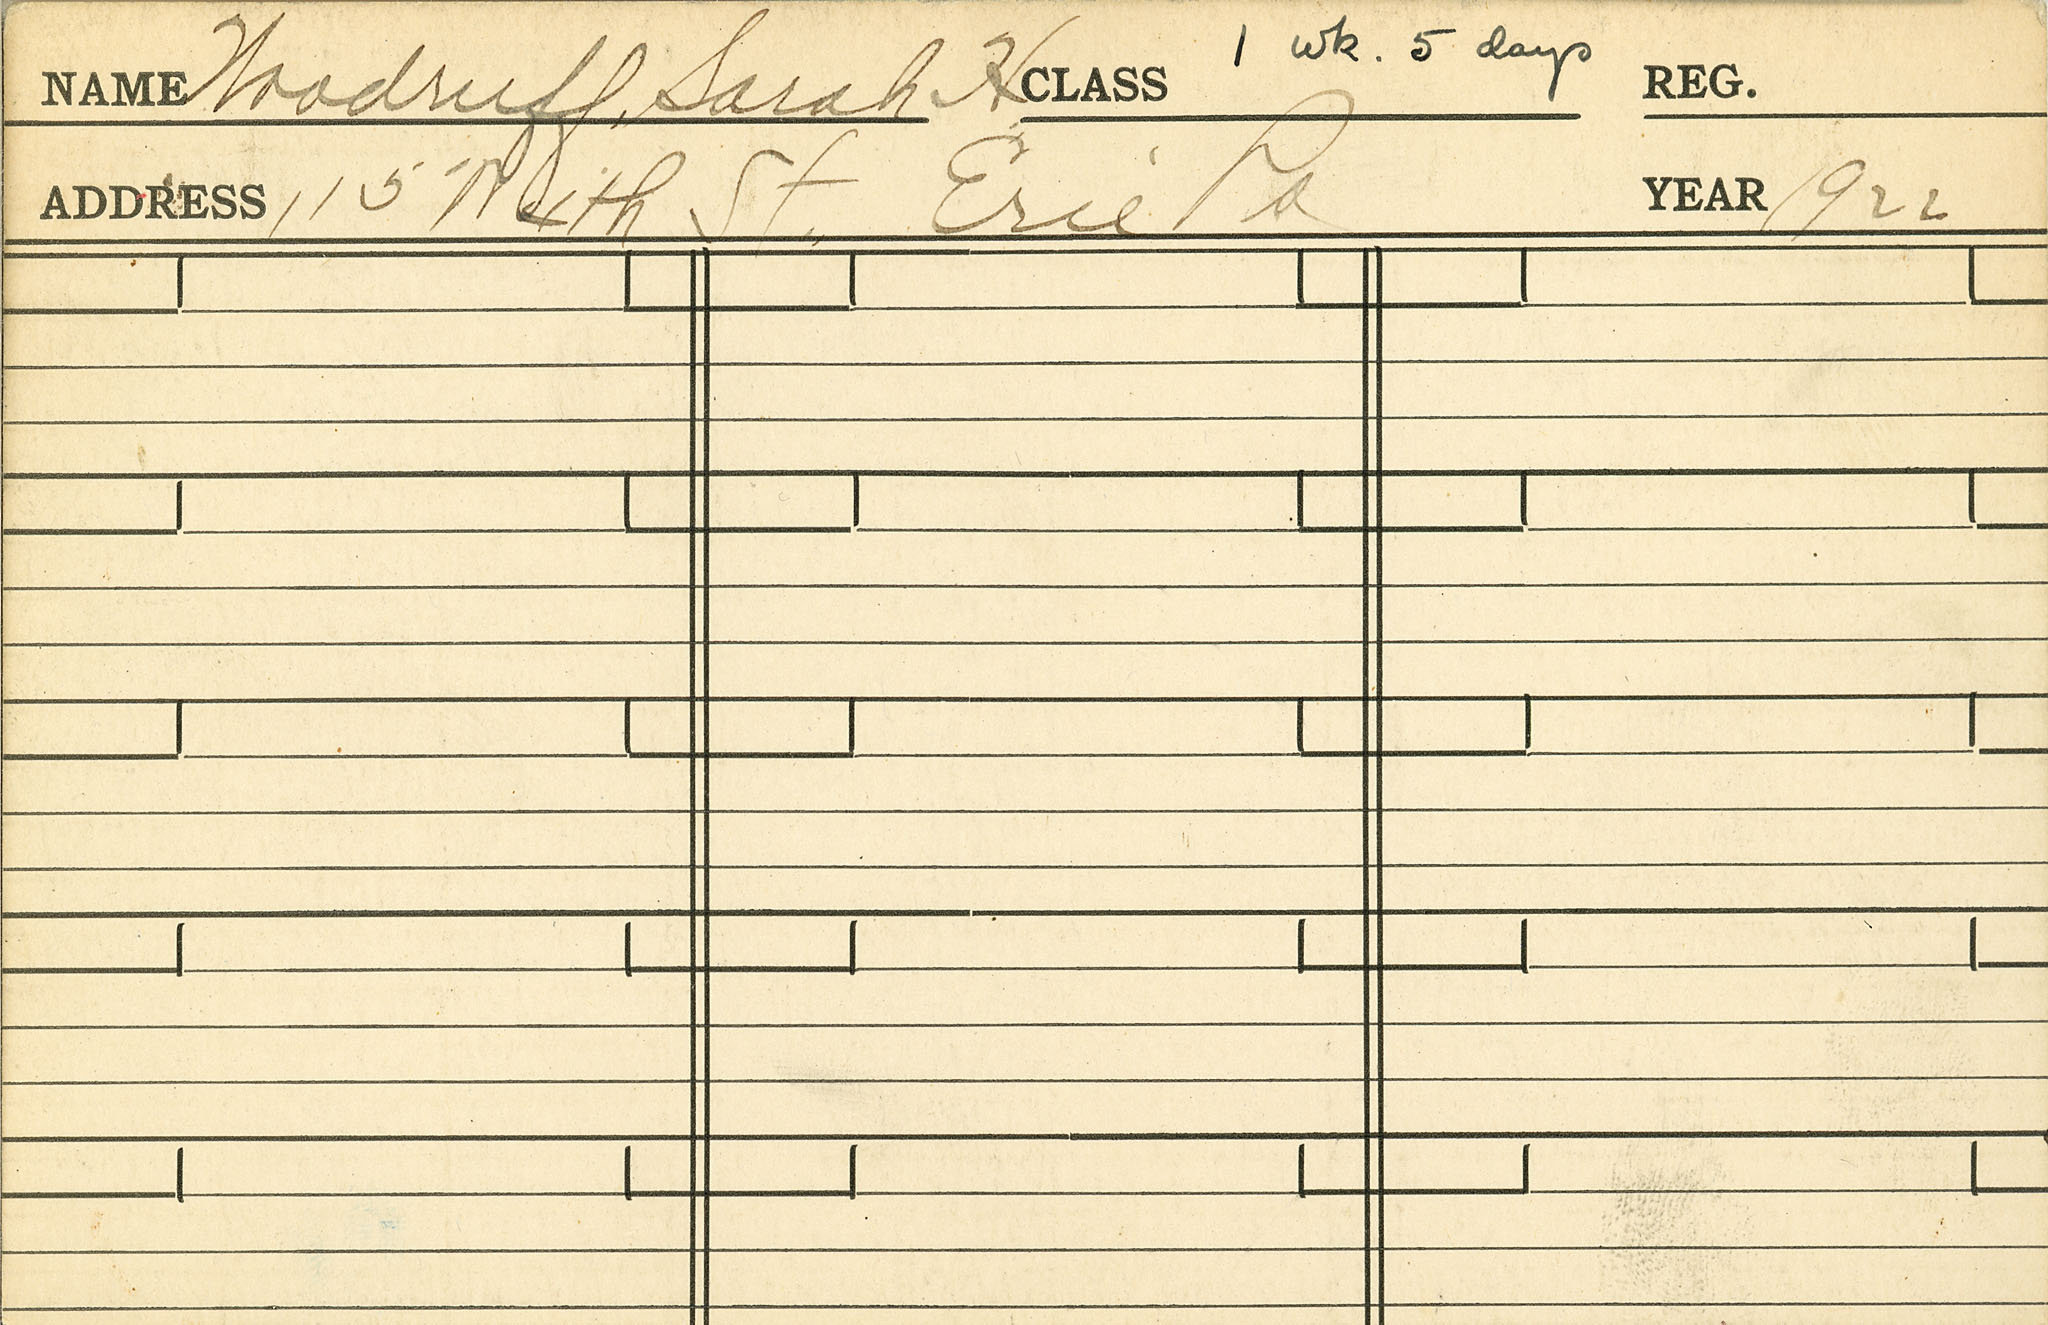 NAME Woodruff, Sarah H CLASS 1 wk. 5 days REG.
ADDRESS 115 W 4th St. Erie Pa YEAR 1922